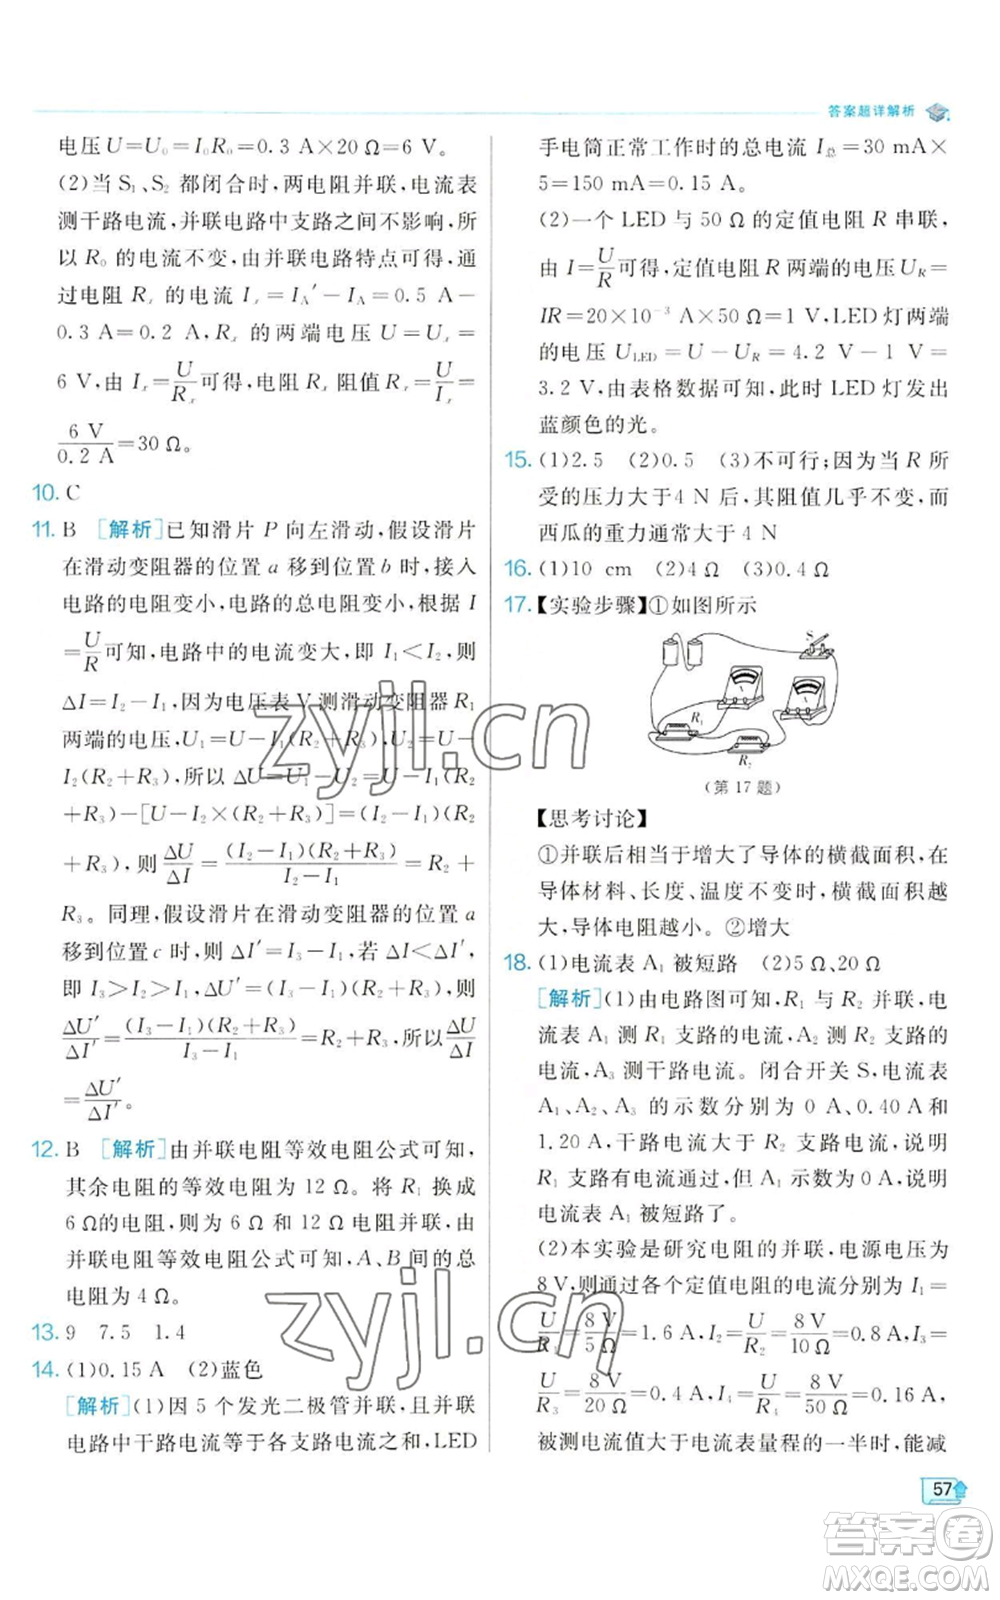 答案超详解析
电压 U=U₀=I₀R₀=0.3 A×20 Ω=6 V。
(2)当 S₁、S₂ 都闭合时,两电阻并联,电流表
测干路电流,并联电路中支路之间不影响,所
以 R₀ 的电流不变,由并联电路特点可得,通
过电阻 Rₓ 的电流 Iₓ=I_A′-I_A=0.5 A-
0.3 A=0.2 A,Rₓ 的两端电压 U=Uₓ=
6 V,由 Iₓ=U/Rₓ可得,电阻 Rₓ 阻值 Rₓ=U/Iₓ=
6 V/0.2 A=30 Ω。
10. C
11. B [解析]已知滑片 P 向左滑动,假设滑片
在滑动变阻器的位置 a 移到位置b 时,接入
电路的电阻变小,电路的总电阻变小,根据 I
=U/R可知,电路中的电流变大,即 I₁<I₂,则
ΔI=I₂-I₁,因为电压表 V 测滑动变阻器 R₁
两端的电压,U₁=U-I₁(R₂+R₃),U₂=U-
I₂(R₂+R₃),所以 ΔU=U₁-U₂=U-I₁(R₂
+R₃)-[U-I₂×(R₂+R₃)]=(I₂-I₁)(R₂
+R₃),则ΔU/ΔI=(I₂-I₁)(R₂+R₃)/I₂-I₁=R₂+
R₃。同理,假设滑片在滑动变阻器的位置 a
移到位置c 时,则 ΔI′=I₃-I₁,若 ΔI<ΔI′,
即 I₃>I₂>I₁,则 ΔU′=(I₃-I₁)(R₂+R₃),则
ΔU′/ΔI′=(I₃-I₁)(R₂+R₃)/I₃-I₁=R₂+R₃,所以ΔU/ΔI
=ΔU′/ΔI′。
12. B [解析]由并联电阻等效电阻公式可知,
其余电阻的等效电阻为 12 Ω。将 R₁ 换成
6 Ω的电阻,则为 6 Ω 和 12 Ω 并联,由
并联电阻等效电阻公式可知,A、B 间的总
电阻为 4 Ω。
13. 9 7.5 1.4
14. (1)0.15 A (2)蓝色
[解析](1)因 5 个发光二极管并联,且并联
电路中干路电流等于各支路电流之和,LED
手电筒正常工作时的总电流 I总=30 mA×
5=150 mA=0.15 A。
(2)一个 LED 与 50 Ω 的定值电阻 R 串联,
由 I=U/R可得,定值电阻 R 两端的电压 U_R=
IR=20×10⁻³ A×50 Ω=1 V,LED 灯两端
的电压 U_LED=U-U_R=4.2 V-1 V=
3.2 V,由表格数据可知,此时 LED 灯发出
蓝颜色的光。
15. (1)2.5 (2)0.5 (3)不可行;因为当 R 所
受的压力大于4 N 后,其阻值几乎不变,而
西瓜的重力通常大于 4 N
16. (1)10 cm (2)4 Ω (3)0.4 Ω
17. 【实验步骤】①如图所示
S
R₁
R₂
(第 17 题)
【思考讨论】
①并联后相当于增大了导体的横截面积,在
导体材料、长度、温度不变时,横截面积越
大,导体电阻越小。②增大
18. (1)电流表 A₁ 被短路 (2)5 Ω、20 Ω
[解析](1)由电路图可知,R₁ 与 R₂ 并联,电
流表 A₁ 测 R₁ 支路的电流,A₂ 测 R₂ 支路的
电流,A₃ 测干路电流。闭合开关 S,电流表
A₁、A₂、A₃ 的示数分别为 0 A、0.40 A 和
1.20 A,干路电流大于 R₂ 支路电流,说明
R₁ 支路有电流通过,但 A₁ 示数为 0,说明
电流表 A₁ 被短路了。
(2)本实验是研究电阻的并联,电源电压为
8 V,则通过各个定值电阻的电流分别为 I₁=
U/R₁=8 V/5 Ω=1.6 A,I₂=U/R₂=8 V/10 Ω=0.8 A,I₃=
U/R₃=8 V/20 Ω=0.4 A,I₄=U/R₄=8 V/50 Ω=0.16 A,
被测电流值大于电流表量程的一半时,能减
57
zyjl.cn
zyjl.cn
答案卷
MXQE.COM